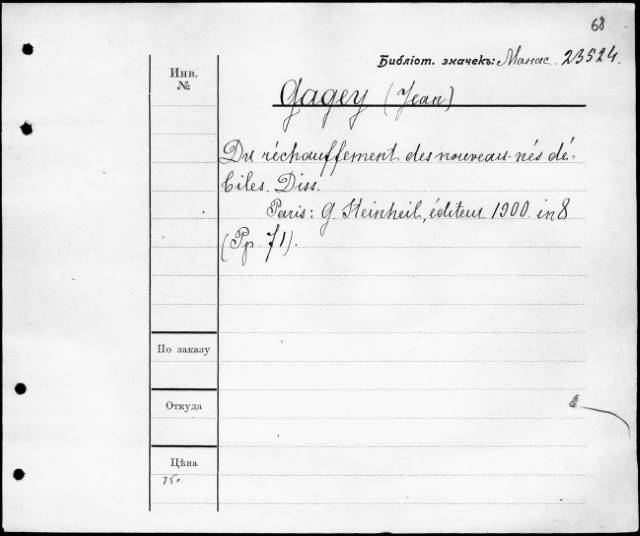 68
Библіот. значекъ: Манас. 23524.
Инв.
№
Gagey (Jean)
Du réchauffement des nouveau-nés dé-
biles. Diss.
Paris: G. Steinheil, éditeur 1900. in 8
(Pp. 71).
По заказу
Откуда
Цѣна